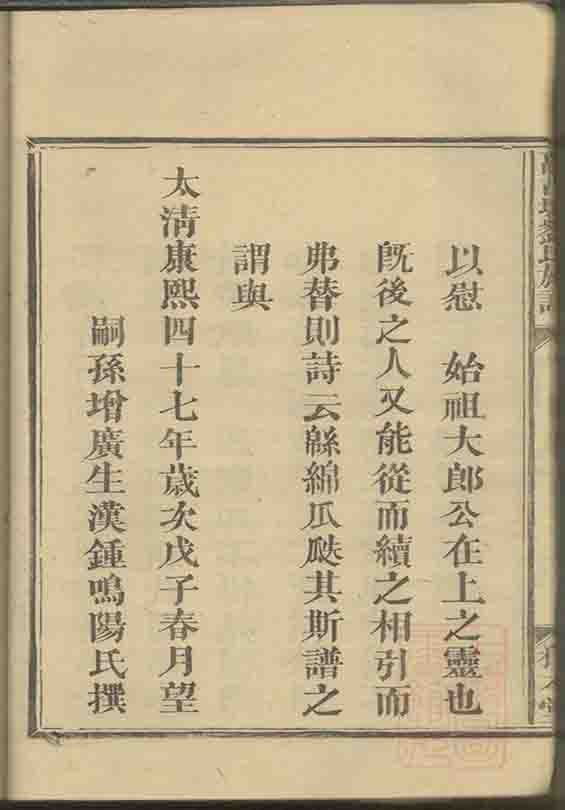 劉氏族譜
以慰　始祖大郎公在上之靈也
旣後之人又能從而續之相引而
弗替則詩云緜綿瓜瓞其斯譜之
謂與
太清康熙四十七年歲次戊子春月望
嗣孫增廣生漢鍾鳴陽氏撰